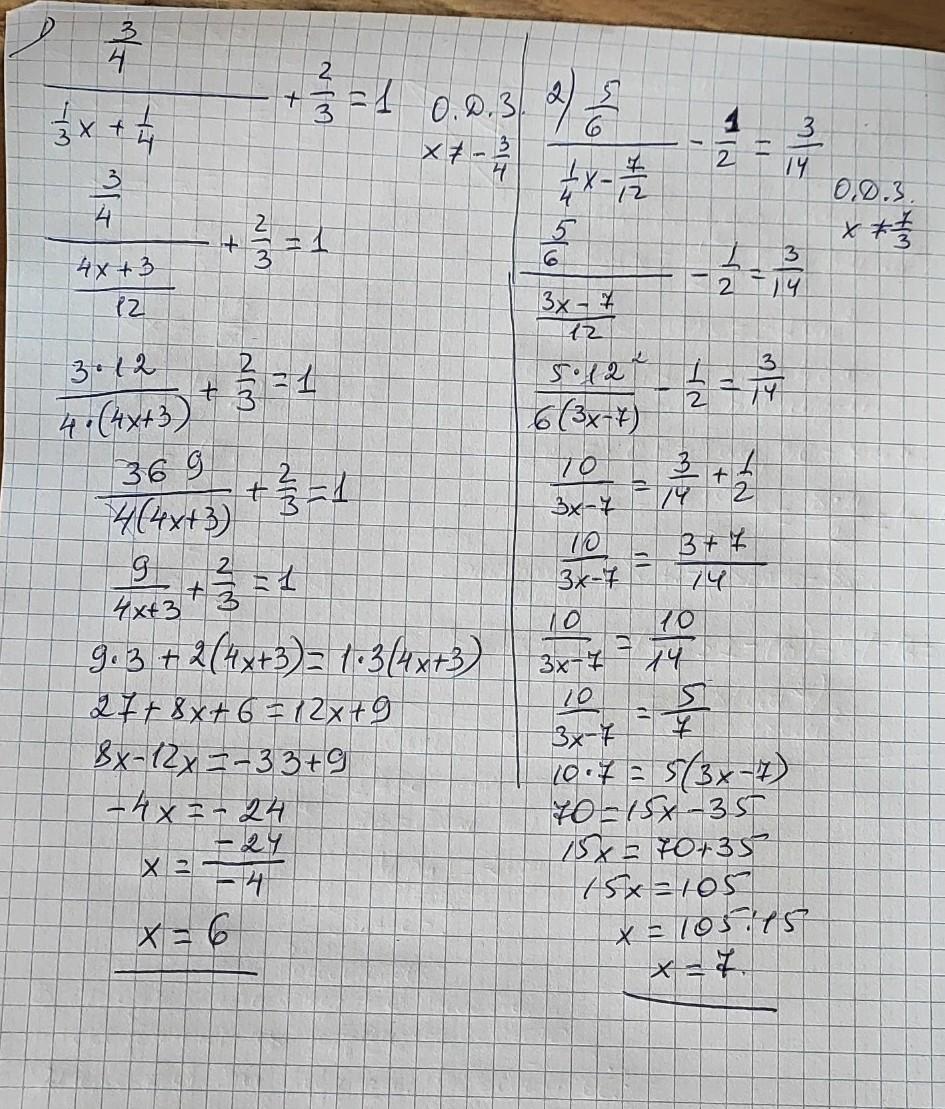 1) (3/4)/(1/3 x + 1/4) + 2/3 = 1 О.Д.З.
x ≠ - 3/4
(3/4)/((4x + 3)/12) + 2/3 = 1
(3·12)/(4·(4x+3)) + 2/3 = 1
(36 9)/(4(4x+3)) + 2/3 = 1
9/(4x+3) + 2/3 = 1
9·3 + 2(4x+3) = 1·3(4x+3)
27 + 8x + 6 = 12x + 9
8x - 12x = -33 + 9
-4x = -24
x = (-24)/(-4)
x = 6
2) (5/6)/(1/4 x - 7/12) - 1/2 = 3/14
О.Д.З.
x ≠ 7/3
(5/6)/((3x - 7)/12) - 1/2 = 3/14
(5·12 2)/(6(3x-7)) - 1/2 = 3/14
10/(3x-7) = 3/14 + 1/2
10/(3x-7) = (3+7)/14
10/(3x-7) = 10/14
10/(3x-7) = 5/7
10·7 = 5(3x-7)
70 = 15x - 35
15x = 70+35
15x = 105
x = 105:15
x = 7.